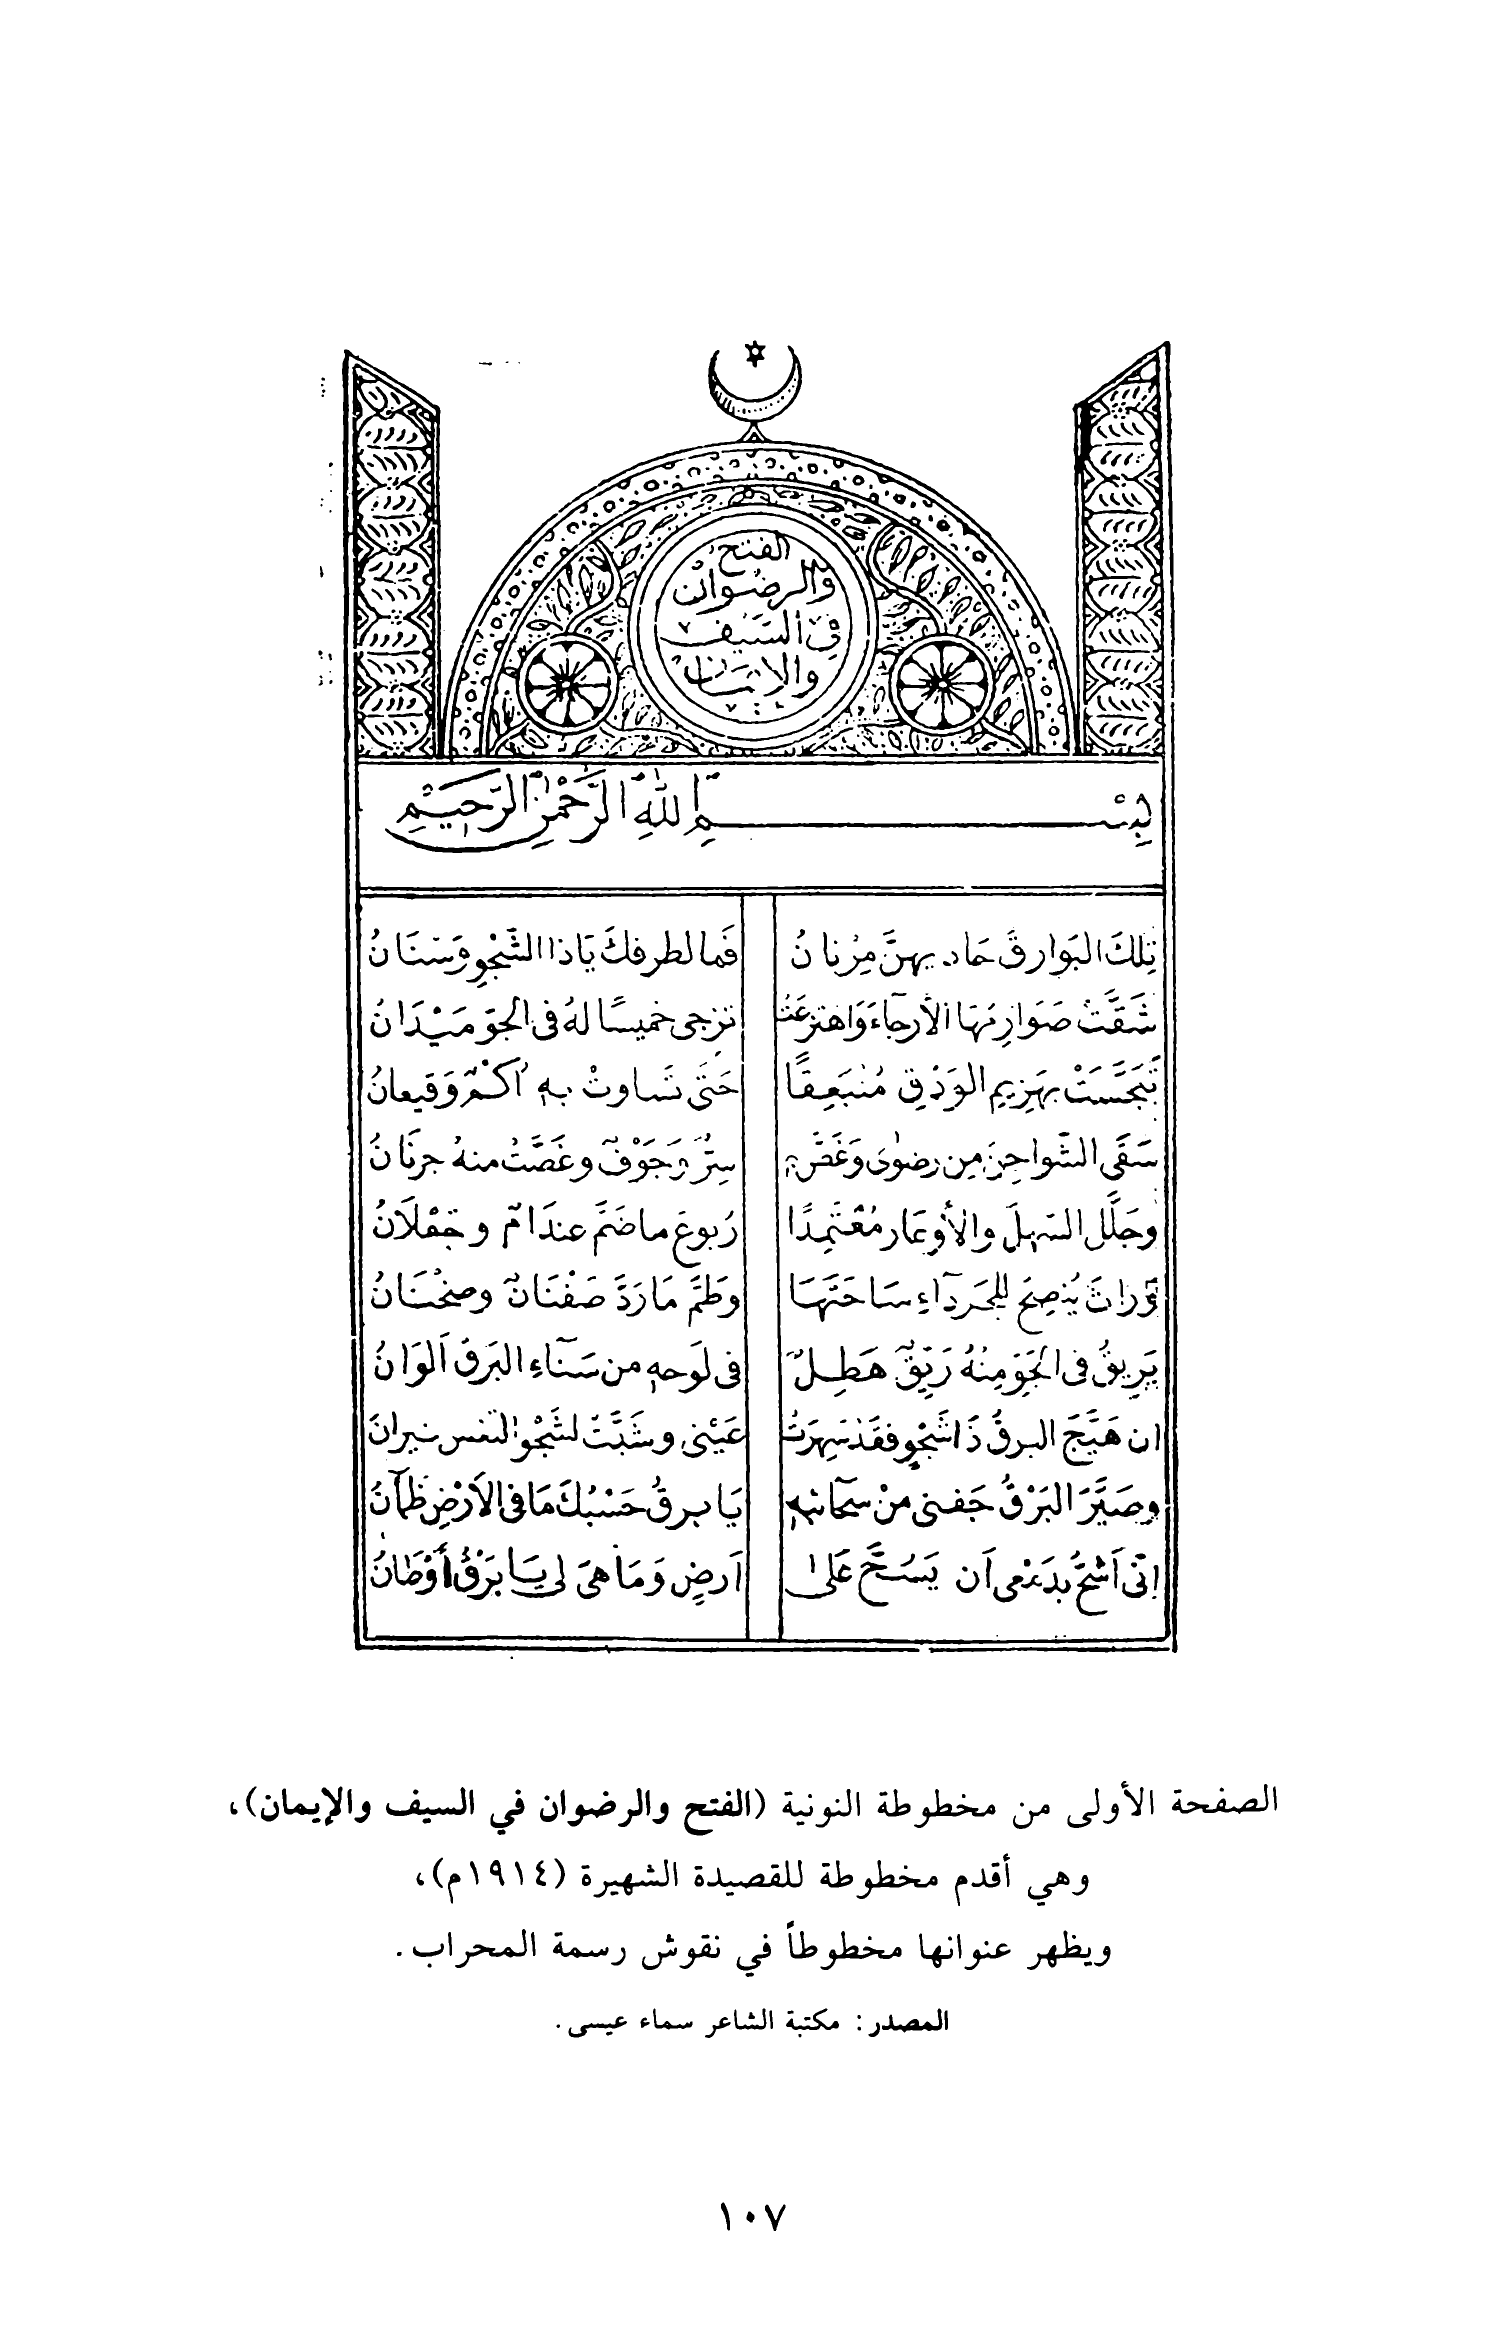 الفتح
والرضوان
في السيف
والايمان
بِسْمِ اللهِ الرَّحْمٰنِ الرَّحِيمِ
تِلكَ البَوارقَ حَاديهنَّ مِرْنانُ فَما لطرفكَ يَاذا الشَّجْوِ وَسْنَانُ
شَقَّتْ صَوَارِمُهَا الأرجآءَ وَاهتزعَتْ تزجى خميسًا لهُ فى الجوّ مَيْدَانُ
تَبَجَّسَتْ بهَزيمِ الوَدْقِ مُنْبَعِقًا حَتىَّ تَساوتْ بهِ أكمٌ وَقيعانُ
سَقَى الشَّواجِنَ مِن رضوٰى وَغَصَّ بهِ سِرٌّ وَجَوْفٌ وغَصَّتْ منهُ جرنَانُ
وجَلَّل السّهلَ والأوعَار مُعْتَمِدًا رُبوعَ ماضَمَّ عندَامٌ وجَعْلَانُ
يُنْضِحُ للجَردآءِ سَاحَتَهَا وطَمَّ مَارَدَّ صَفْنَانٌ وصخْنَانُ
يَرِيقُ فى الجَوِّ مِنْهُ رَيِّقٌ هَطِلٌ فى لَوحهِ من سَنآءِ البَرقِ اَلوَانُ
ان هَيَّجَ البرقُ ذَا شَجْوٍ فقَدْ سَهِرَتْ عَيْنى وشَبَّتْ لشَجْو النّفس نيرانُ
وصَيَّرَ البَرْقُ جَفنى مِنْ سَحَآئبهِ يَا برقُ حَسْبُكَ مَا فى الأَرْضِ ظمآنُ
اِنّى اَشحُّ بدَمْعى اَن يَسُحَّ عَلىٰ اَرضٍ وَمَا هىَ لى يَا بَرْقُ أوْطَانُ
الصفحة الأولى من مخطوطة النونية (الفتح والرضوان في السيف والإيمان)،
وهي أقدم مخطوطة للقصيدة الشهيرة (١٩١٤م)،
ويظهر عنوانها مخطوطاً في نقوش رسمة المحراب.
المصدر: مكتبة الشاعر سماء عيسى.
١٠٧